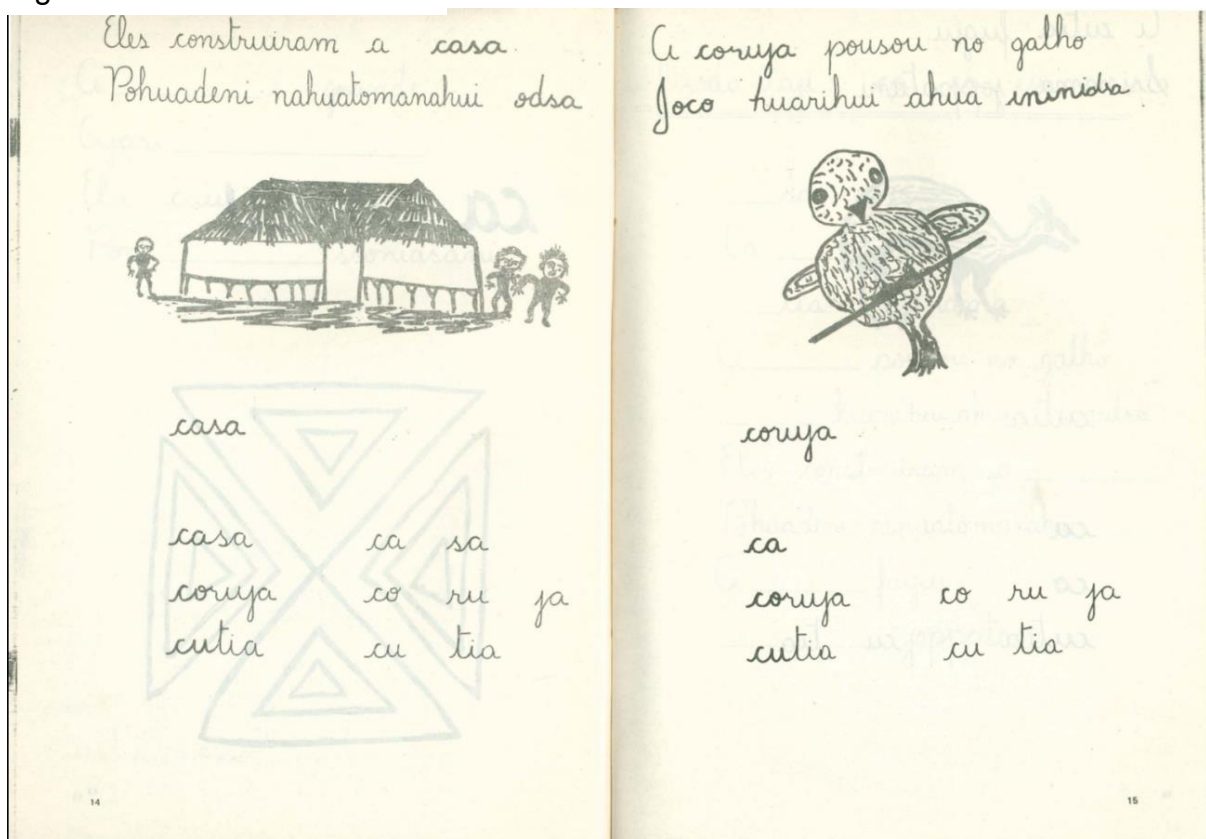 Eles construiram a casa.
Pohuadeni nahuatomanahui odsa
casa
casa ca sa
coruja co ru ja
cutia cu tia
14
A coruja pousou no galho
Joco huarihui ahua ininidsa
coruja
ca
coruja co ru ja
cutia cu tia
15